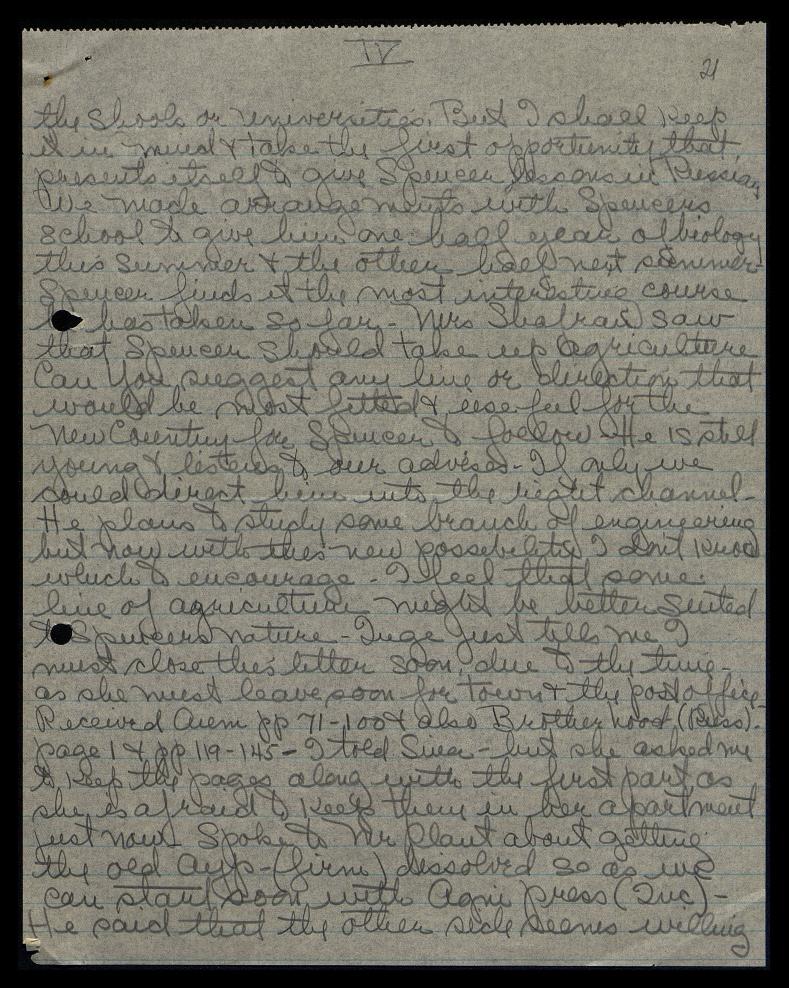 IV
21
the shools or universities. But I shall keep
it in mind & take the first opportunity that
presents itself to give Spencer lessons in Russian
We made arrangements with Spencers
school to give him one half year of biology
this summer & the other half next summer-
Spencer finds it the most interesting course
he has taken so far - Mrs Shafran saw
that Spencer should take up agriculture
Can You suggest any line or direction that
would be most fitted & usefull for the
New Country for Spencer to follow - He is still
young & listens to our advises - If only we
could direct him into the right channel -
He plans to study some branch of engineering
but now with this new possebility I dont know
which to encourage - I feel that some
line of agriculture might be better suited
to Spencers nature - Inge just tells me I
must close this letter soon, due to the time -
as she must leave soon for town & the post office -
Received Aum pp 71-100 & also Brotherhood (Russ).
page 1 & pp 119-145 - I told - but she asked me
to keep the pages along with the first part as
she is afraid to keep them in her apartment
just now - Spoke to Mr Plaut about getting
the old Ayp - (firm) dissolved so as we
can start soon with Agni press (Inc) -
He said that the other side seems willing